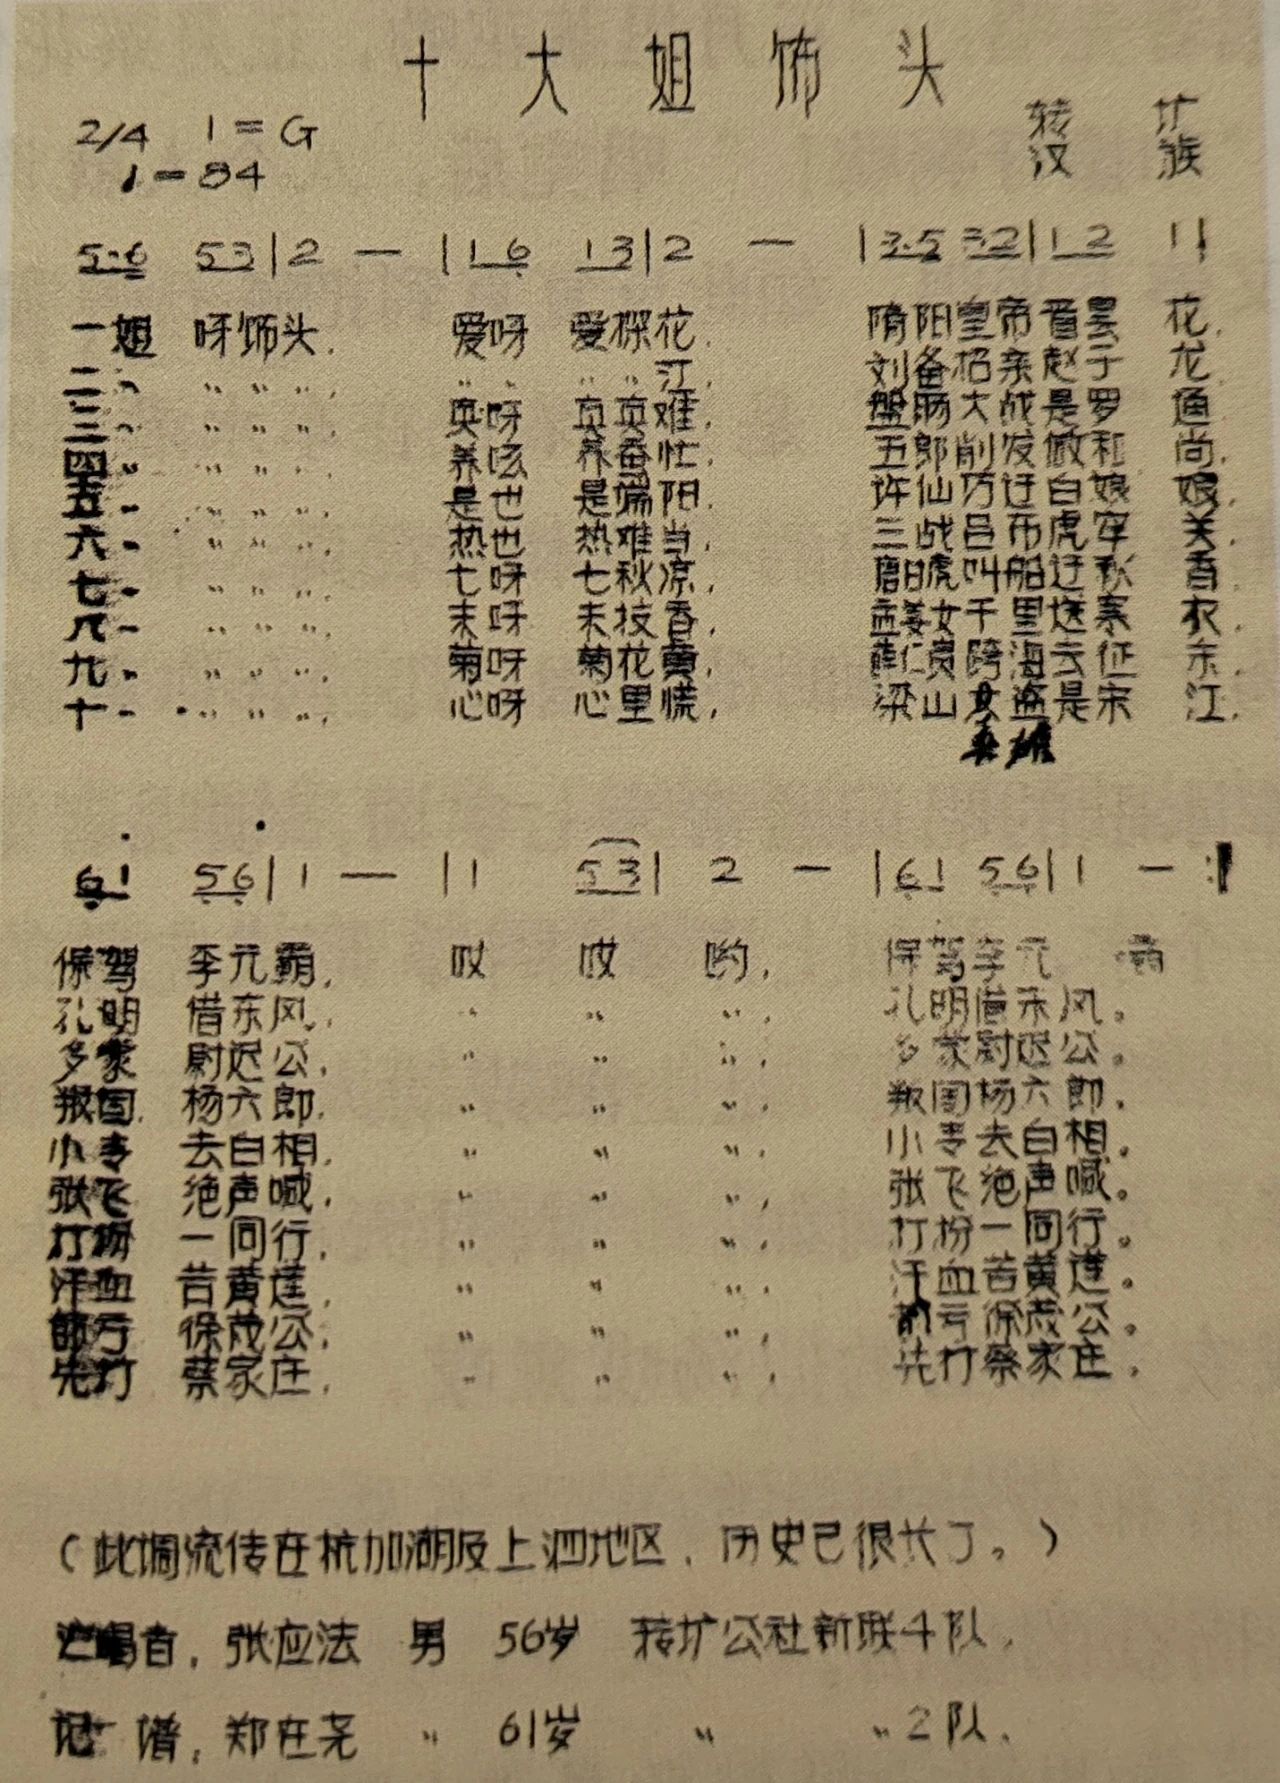 十大姐饰头
2/4 1=G 转圹
♩=84 汉族
5·6 53|2 — |1 6 13|2 — |3·5 32|1 2 1|
一姐 呀饰头, 爱呀 爱探花, 隋阳皇帝看昙花,
二〃 〃〃〃, 〃〃 〃〃汀, 刘备招亲赵子龙,
三〃 〃〃〃, 英呀 英英难, 盘肠大战是罗通,
四〃 〃〃〃, 养呀 养蚕忙, 五郎削发做和尚,
五〃 〃〃〃, 是也 是端阳, 许仙巧迂白娘娘,
六〃 〃〃〃, 热也 热难当, 三战吕布虎牢关,
七〃 〃〃〃, 七呀 七秋凉, 唐白虎叫船迂秋香,
八〃 〃〃〃, 末呀 末技香, 孟姜女千里送寒衣,
九〃 〃〃〃, 菊呀 菊花黄, 薛仁贵跨海去征东,
十〃 〃〃〃, 心呀 心里慌, 梁山 是宋江,
英雄
61 56|1 — |1 53|2 — |61 56|1 — :|
保驾 李元霸, 哎 哎 哟, 保驾李元霸
孔明 借东风, 〃 〃 〃, 孔明借东风。
多蒙 尉迟公, 〃 〃 〃, 多蒙尉迟公。
叛国 杨六郎, 〃 〃 〃, 叛国杨六郎,
小青 去白相, 〃 〃 〃, 小青去白相。
张飞 绝声喊, 〃 〃 〃, 张飞绝声喊。
打扮 一同行, 〃 〃 〃, 打扮一同行。
汗血 苦黄莲, 〃 〃 〃, 汗血苦黄莲。
亏 徐茂公, 〃 〃 〃, 亏徐茂公。
先打 蔡家庄, 〃 〃 〃, 先打蔡家庄,
(此调流传在杭加湖及上泗地区,历史已很长了。)
演唱者,张应法 男 56岁 转圹公社新联4队,
记谱,郑在尧 〃 61岁 〃 〃2队,